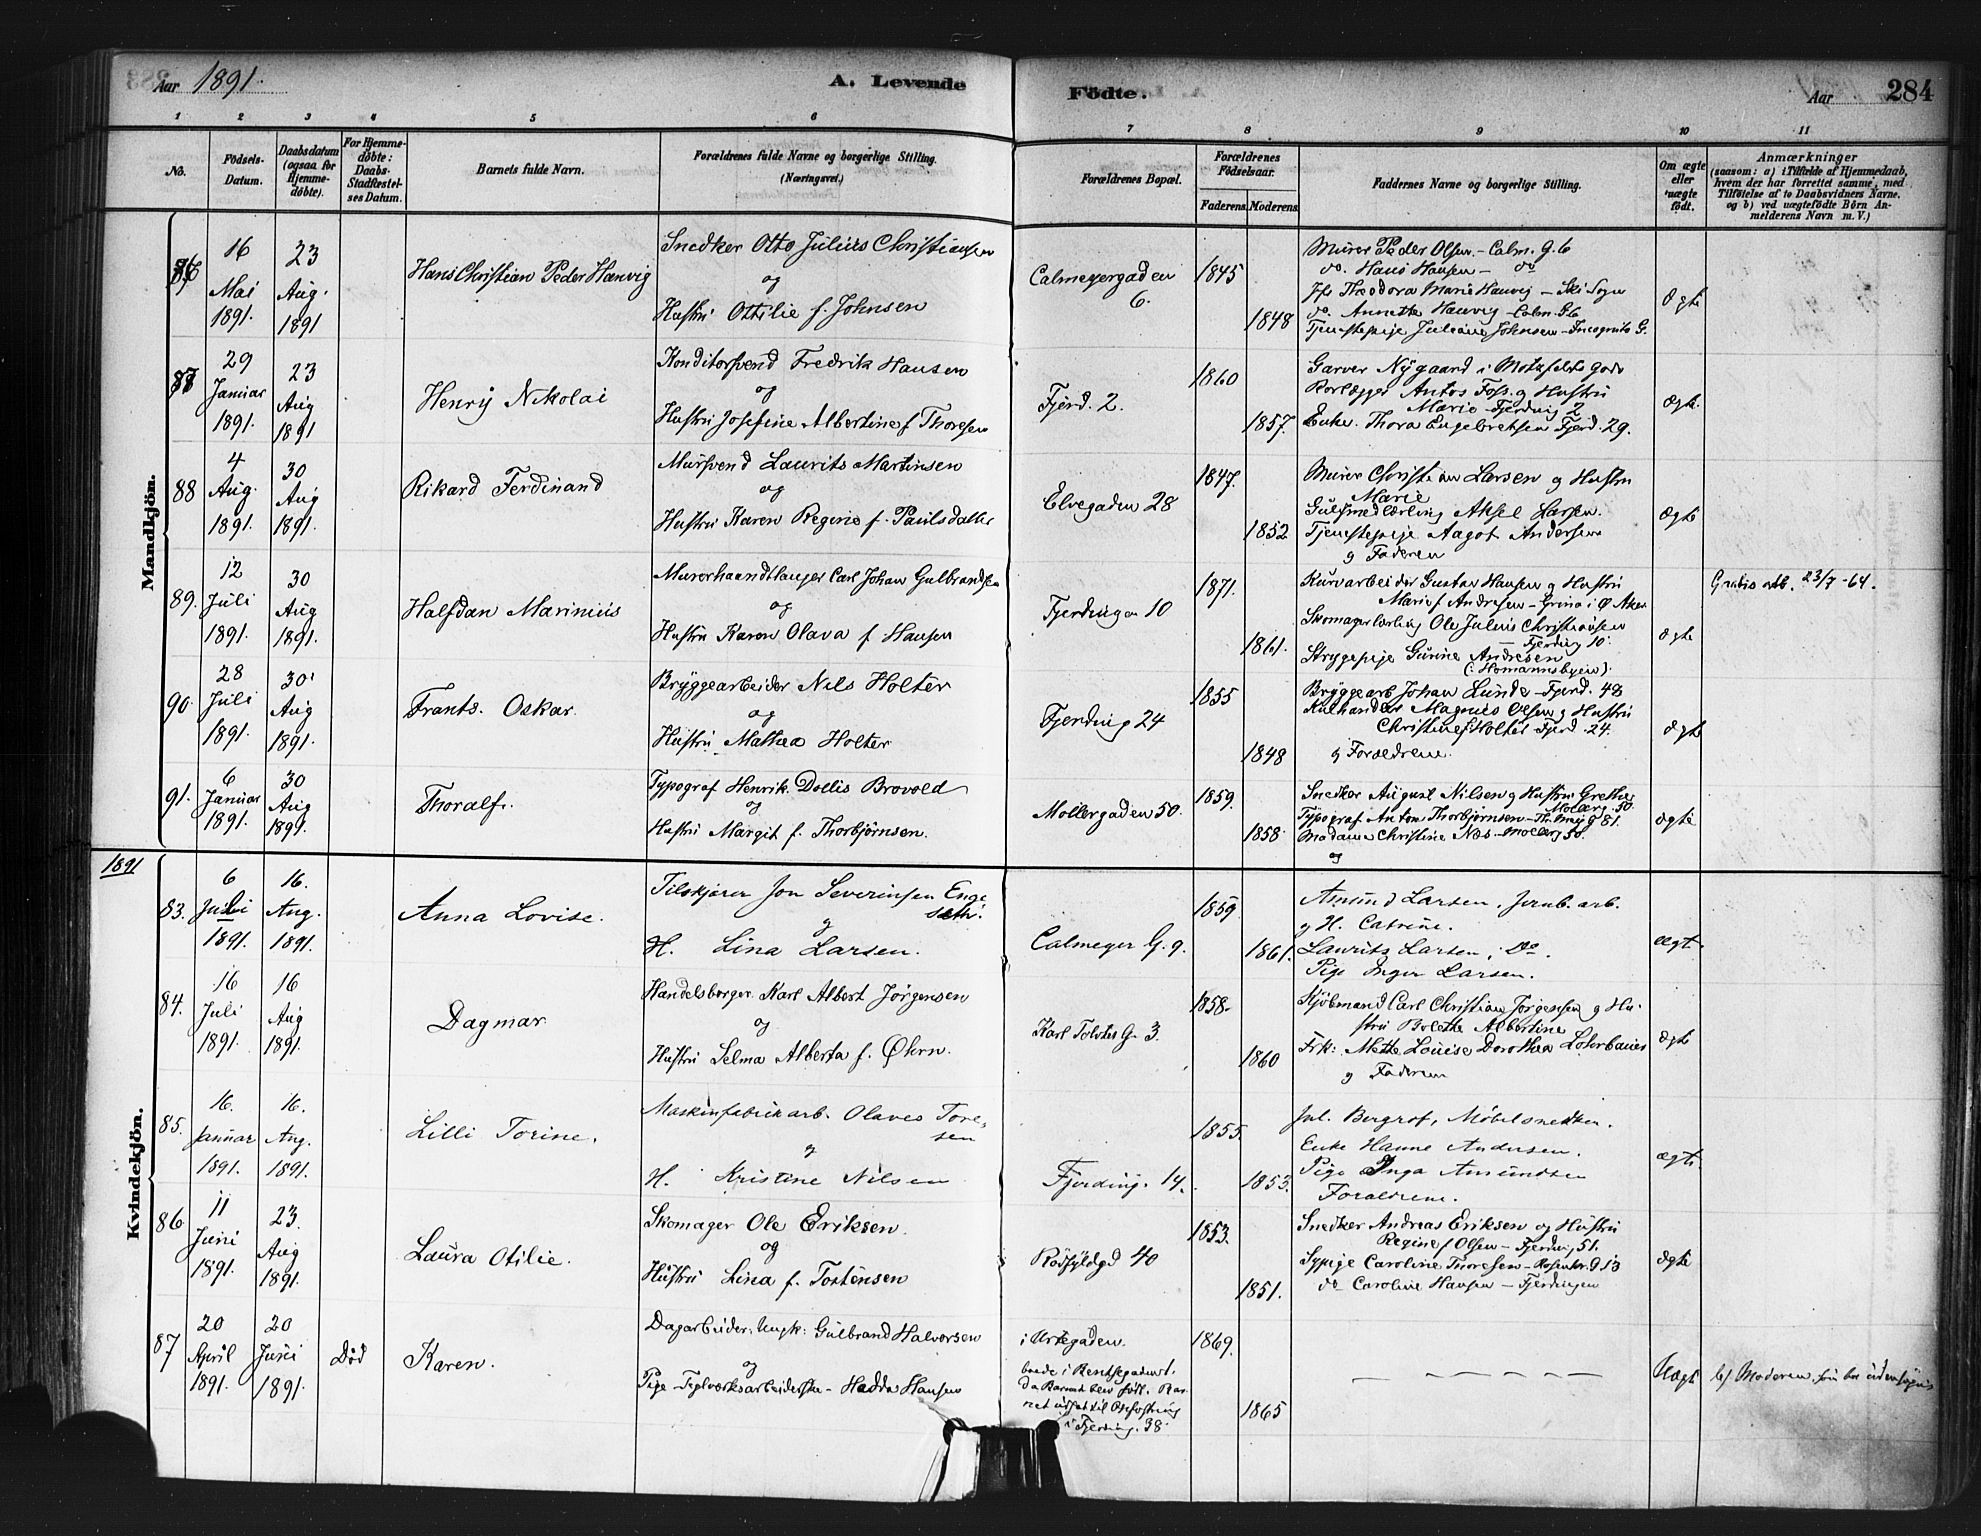 Aar 1891.
A. Levende
Födte.
Aar
284
1 2 3 4 5 6 7 8 9 10 11
No.
Födsels-
Datum.
Daabsdatum
(ogsaa for
Hjemme-
döbte).
For Hjemme-
döbte:
Daabs-
Stadfæstel-
ses Datum.
Barnets fulde Navn.
Forældrenes fulde Navne og borgerlige Stilling.
(Næringsvei.)
Forældrenes Bopæl.
Forældrenes
Födselsaar.
Faderens. Moderens.
Faddernes Navne og borgerlige Stilling.
Om ægte
eller
uægte
födt.
Anmærkninger
(saasom: a) i Tilfælde af Hjemmedaab,
hvem der har forrettet samme, med
Tilföielse af to Daabsvidners Navne.
og b) ved uægtefödte Börn An-
melderens Navn m. V.)
Mandkjön.
86
16
Mai
1891.
23
Aug.
1891
Hans Christian Peder Hanvig
Snedker Otto Julius Christiansen
og
Hustru Ottilie f. Johnsen
Calmeyergaden
6.
1845
1848
Murer Peder Olsen - Calm. G. 6
do. Hans Hansen - do
Theodora Marie Hauvig - Ski Sogn
do. Annette Hauvig - Calm. G 6
Tjenestepige Juliane Johnsen - Incognito G.
Ægte
87
29
Januar
1891.
23
Aug
1891
Henry Nikolai
Konditorsvend Fredrik Hansen
og
Hustru Josefine Albertine f Thoresen
Fjerd. 2.
1860
1857.
Garver Nygaard i Motzfeldts Gade
Rorlægger Antos Foss. og Hustru
Marie - Fjerding 2
Enke. Thora Engebretsen Fjerd. 29.
Ægte.
88
4
Aug.
1891.
30
Aug
1891.
Rikard Ferdinand
Mursvend Laurits Martinsen
og
Hustru Karen Regine f. Paulsdatter
Elvegaden 28
1847.
1852
Murer Christian Larsen og Hustru
Marie
Gulsmedlærling Aksel Larsen.
Tjenestepige Aagot Andersen
og Faderen
Ægte
89.
12
Juli
1891.
30
Aug
1891.
Halfdan Marinius
Murerhaandtlanger Carl Johan Gulbrandsen
og
Hustru Karen Olava f. Hansen
Fjerdingen 10
1871.
1861.
Kurvarbeider Gustav Hansen og Hustru
Marie f. Andresen - Grina i Ø. Aker
Skomagerlærling Ole Julius Christiansen
- Fjerding 10.
Strygepige Gurine Andresen
(i Homannsbyen).
Ægte
Gratis atb. 23/7 - 64.
90.
28
Juli
1891.
30
Aug
1891.
Frants. Oskar.
Bryggearbeider Nils Holter
og
Hustru Mathea Holter
Fjerding 24
1855
1848
Bryggearb Johan Lunde - Fjerd. 48
Kulhandler Magnus Olsen og Hustru
Christine f. Holter - Fjerd. 24.
og Forældrene.
Ægte
91.
6
Januar
1891.
30
Aug
1891.
Thoralf.
Typograf Henrik Dollis Brovold
og
Hustru Margit f. Thorbjörnsen.
Møllergaden 50.
1859.
1858
Snedker August Nilsen og Hustru Grethe
Møllerg. 50.
Typograf Anton Thorbjörnsen - Th. Myg 81.
Madame Christine Næs - Møllerg 50.
og
Ægte
1891
Kvindekjön.
83.
6
Juli
1891.
16.
Aug.
1891.
Anna Lovise.
Tilskjærer Jon Severinsen Enge
seth.
og
H. Lina Larsen.
Calmeyer G. 9.
1859.
1861.
Amund Larsen, Jernb. arb.
og H. Catrine.
Laurits Larsen, Do.
Pige Inger Larsen.
ægt.
84.
16
Juli
1891.
16
Aug
1891.
Dagmar
Handelsborger Karl Albert Jörgensen
og
Hustru Selma Alberta f. Öhrn.
Karl Tolvtes G. 3.
1858.
1860
Kjöbmand Carl Christian Jörgensen og Hu-
stru Bolette Albertine
Frk: Mette Louise Dorothea Loherbauer
og Faderen
Ægte
85.
16.
Januar
1891.
16.
Aug.
1891.
Lilli Torine.
Maskinfabrikarb. Olaves Tore-
sen
og
H. Kristine Nilsen
Fjerding. 14.
1855.
1853.
Jul. Bergrof, Möbelsnekker.
Enke Hanne Andersen.
Pige Inga Amundsen
Forældrene.
ægte.
86
11
Juni
1891.
23.
Aug
1891.
Laura Otilie.
Skomager Ole Eriksen.
og
Hustru Lina f. Tostensen
Rødfyldgd 40
1853.
1851.
Snedker Andreas Eriksen og Hustru
Regine f Olsen - Fjerding 51.
Sypige Caroline Thoresen - Rosenkr. G 13
do Caroline Hansen - Fjerdingen
Ægte
87
20
April
1891.
20
Juni
1891.
Død
Karen.
Dagarbeider: Ungk: Gulbrand Halvorsen
og
Pige - Teglværksarbeiderske - Hedda Hansen
i Urtegaden.
boede i Rentsegadens 1.
da Barnet blev født. Bar-
net udsat til Opfostring
i Fjerding. 38.
1869.
1865
— — — — —
Uægte
b) Moderen